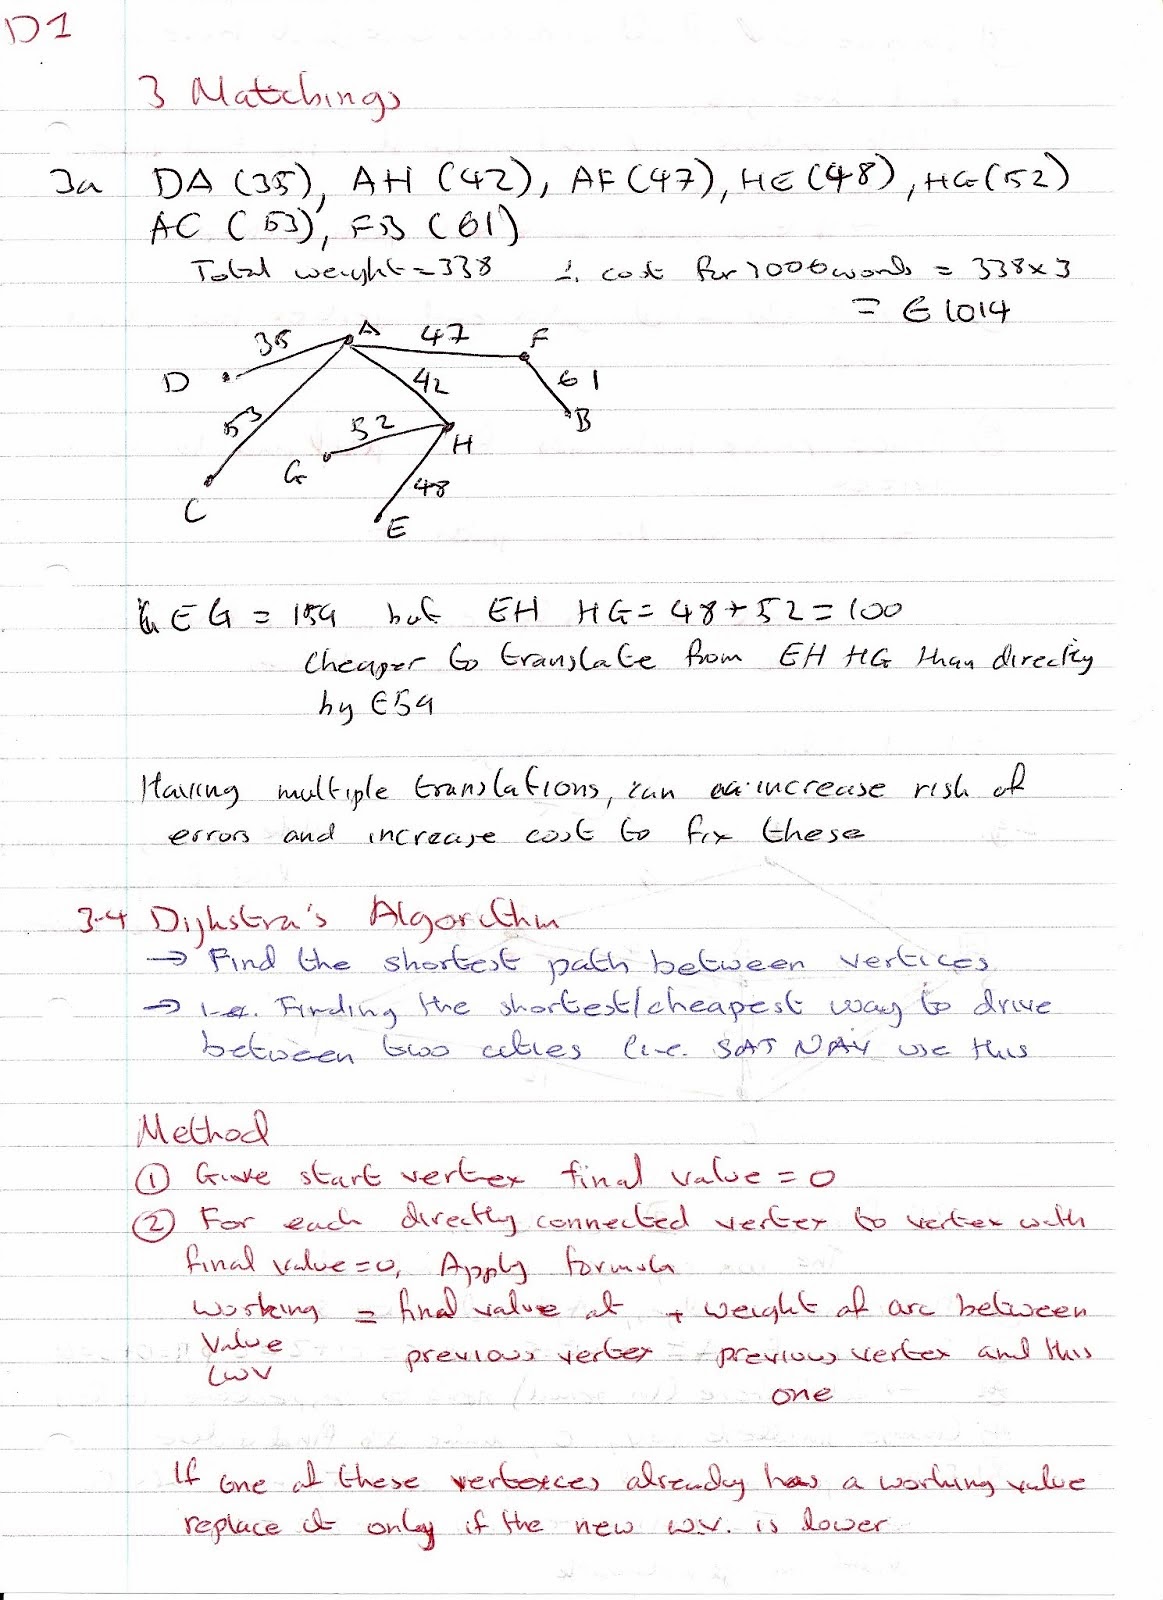 D1
3 Matchings
3a DA (35), AH (42), AF (47), HE (48), HG (52)
AC (53), FB (61)
Total weight = 338 ∴ cost for 1000 words = 338 x 3
= €1014
35 A 47 F
D 42 61
53 52 H B
G 48
C E
EG = 159 but EH HG = 48 + 52 = 100
Cheaper to translate from EH HG than directly
by €59
Having multiple translations, can increase risk of
errors and increase cost to fix these
3.4 Dijkstra's Algorithm
→ Find the shortest path between vertices
→ i.e. Finding the shortest/cheapest way to drive
between two cities (i.e. SAT NAV use this
Method
① Give start vertex final value = 0
② For each directly connected vertex to vertex with
final value = 0, Apply formula
working = final value at + weight of arc between
value previous vertex previous vertex and this
(wv one
If one of these vertexces already has a working value
replace it only if the new w.v. is lower